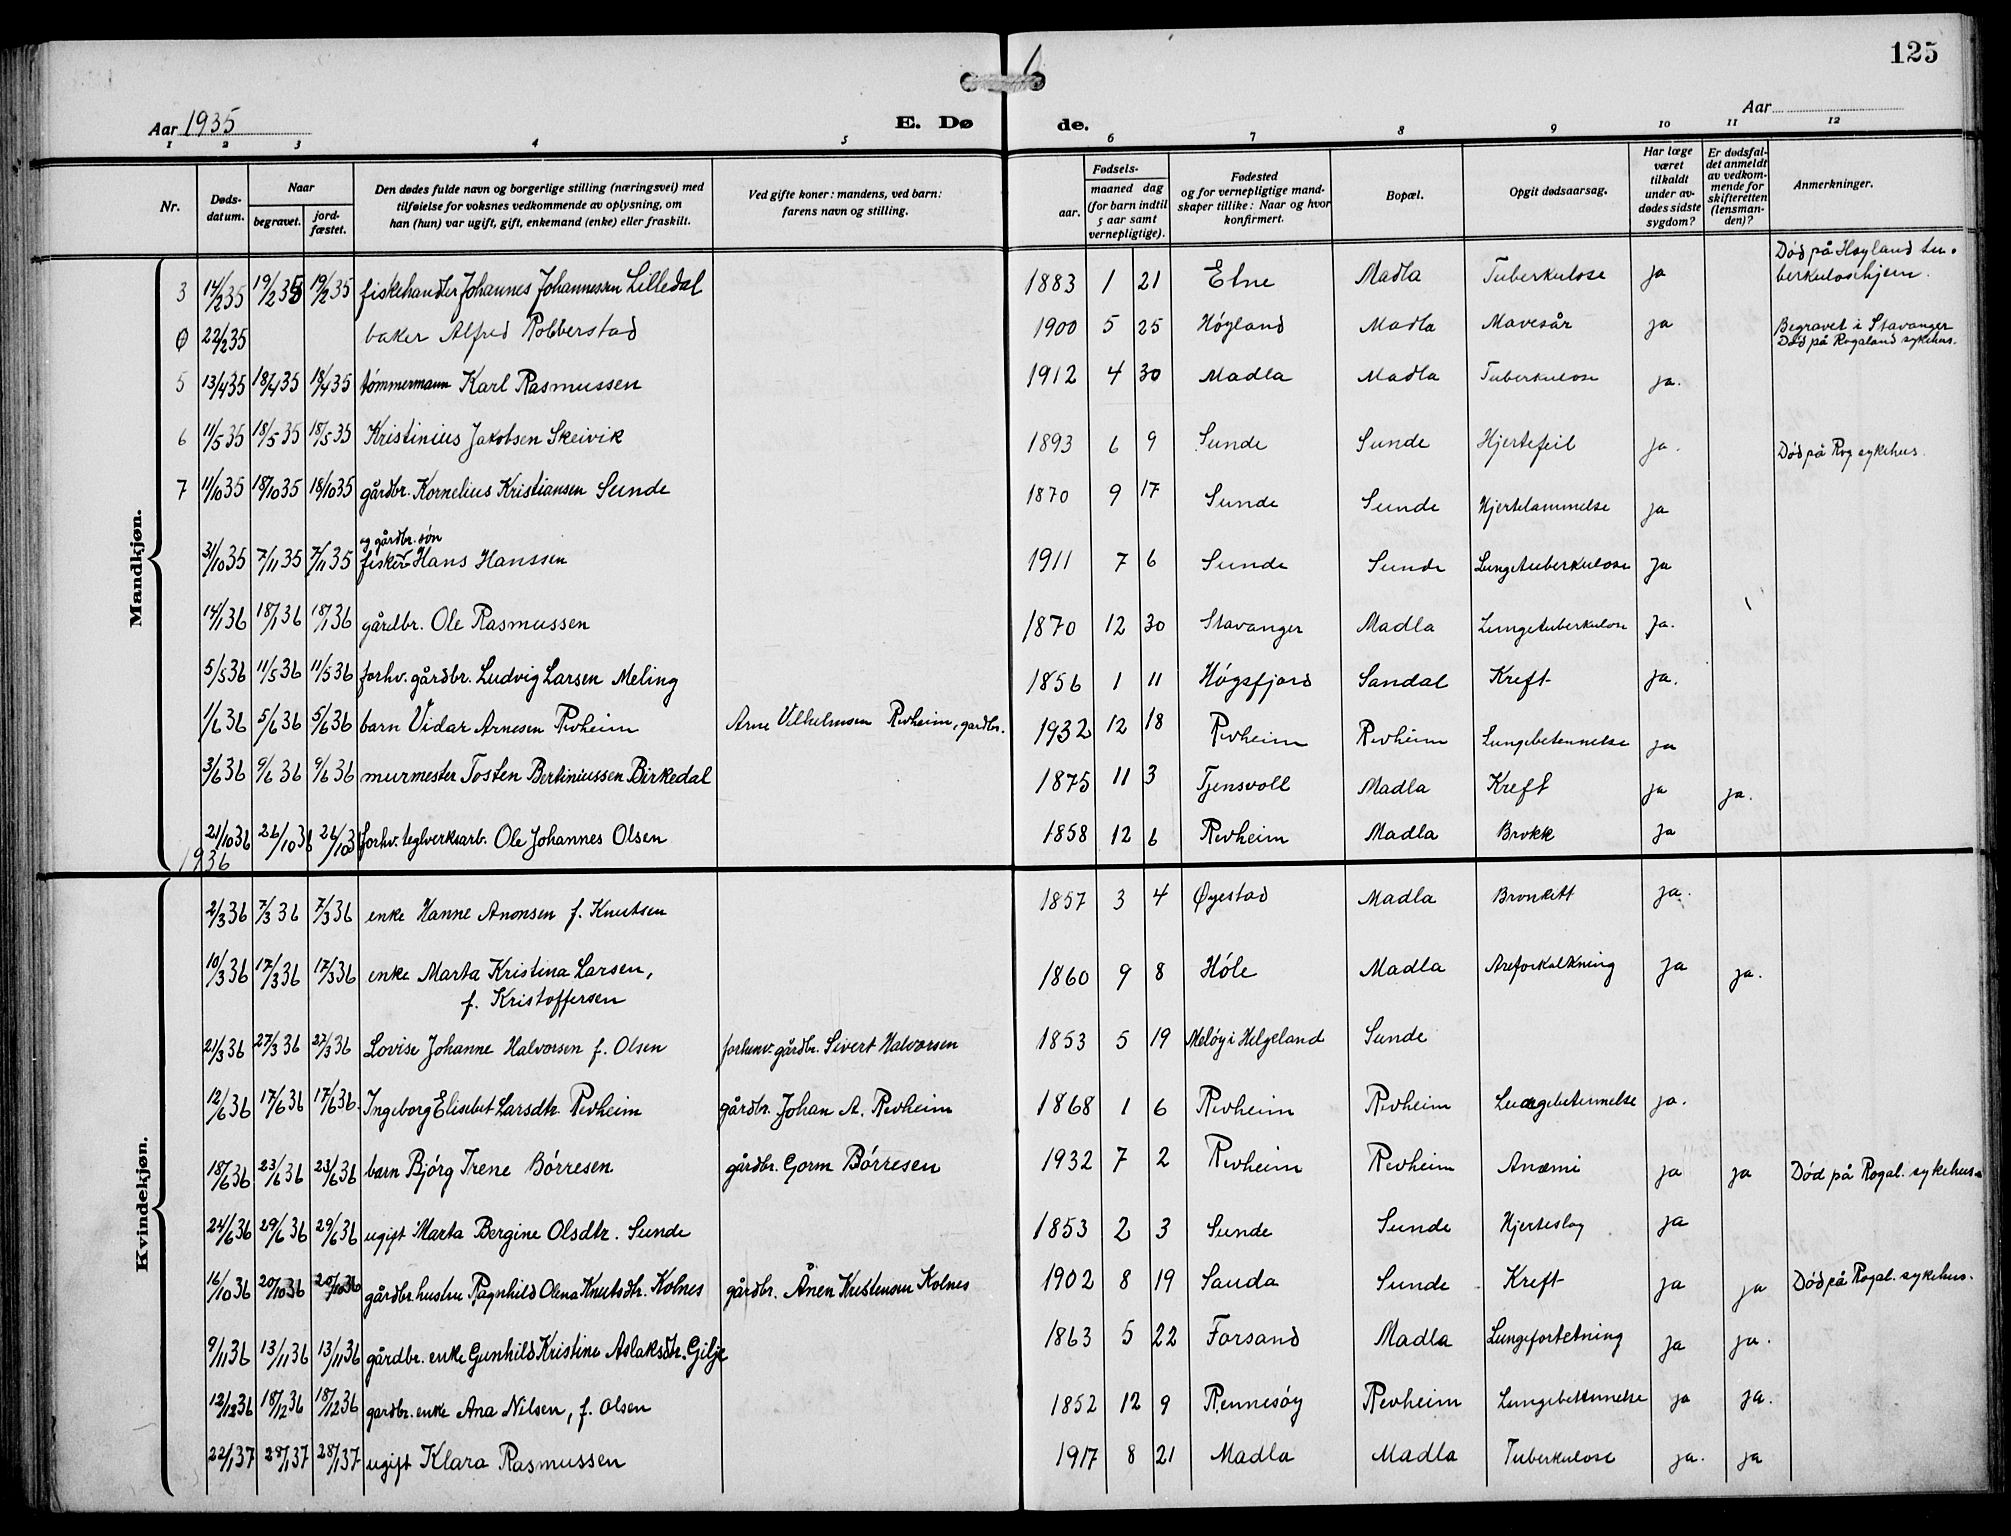 125
Aar 1935
E. Dø de.
Aar
1 2 3 4 5 6 7 8 9 10 11 12
Nr.
Døds-datum.
Naar
begravet.
jord-fæstet.
Den dødes fulde navn og borgerlige stilling (næringsvei) med
tilføielse for voksnes vedkommende av oplysning, om
han (hun) var ugift, gift, enkemand (enke) eller fraskilt.
Ved gifte koner: mandens, ved barn:
farens navn og stilling.
Fødsels-
aar.
maaned dag
(for barn indtil
5 aar samt
vernepligtige).
Fødested
og for vernepligtige mand-
skaper tillike: Naar og hvor
konfirmert.
Bopæl.
Opgit dødsaarsag.
Har læge
været
tilkaldt
under av-
dødes sidste
sygdom?
Er dødsfal-
det anmeldt
av vedkom-
mende for
skifteretten
(lensman-
den)?
Anmerkninger.
Mandkjøn.
3 14/2 35 19/2 35 19/2 35 fiskehandler Johannes Johannessen Lilledal 1883 1 21 Etne Madla Tuberkulose ja Død på Høyland tu-
berkulosehjem.
0 22/2 35 baker Alfred Robberstad 1900 5 25 Høyland Madla Mavesår ja Begravet i Stavanger
Død på Rogaland sykehus.
5 13/4 35 18/4 35 18/4 35 tømmermann Karl Rasmussen 1912 4 30 Madla Madla Tuberkulose ja.
6 11/5 35 18/5 35 18/5 35 Kristinius Jakobsen Skeivik 1893 6 9 Sunde Sunde Hjertefeil ja. Død på Rog sykehus.
7 11/10 35 18/10 35 18/10 35 gårdbr. Kornelius Kristiansen Sunde 1870 9 17 Sunde Sunde Hjertelammelse ja
og gårdbr. søn
31/10 35 7/11 35 7/11 35 fisker Hans Hanssen 1911 7 6 Sunde Sunde Lungetuberkulose ja
14/1 36 18/1 36 18/1 36 gårdbr. Ole Rasmussen 1870 12 30 Stavanger Madla Lungetuberkulose ja.
5/5 36 11/5 36 11/5 36 forhv. gårdbr. Ludvig Larsen Meling 1856 1 11 Høgsfjord Sandal Kreft ja.
1/6 36 5/6 36 5/6 36 barn Vidar Arnesen Revheim Arne Vilhelmsen Revheim, gardbr. 1932 12 18 Revheim Revheim Lungebetennelse ja
3/6 36 9/6 36 9/6 36 murmester Tosten Bertiniussen Birkedal 1875 11 3 Tjensvoll Madla Kreft ja ja.
21/10 36 26/10 36 26/10 3 forhv. teglverksarb. Ole Johannes Olsen 1858 12 6 Revheim Madla Brokk ja
1936
Kvindekjøn.
2/3 36 7/3 36 7/3 36 enke Hanne Anonsen f. Knutsen 1857 3 4 Øyestad Madla Bronkitt ja.
10/3 36 17/3 36 17/3 36 enke Marta Kristina Larsen, 1860 9 8 Høle Madla Areforkalkning ja ja.
f. Kristoffersen
21/3 36 27/3 36 27/3 36 Lovise Johanne Halvorsen f. Olsen forhenv. gårdbr. Sivert Halvorsen 1853 5 19 Meløy i Helgeland Sunde
12/6 36 17/6 36 17/6 36 Ingeborg Elisebet Larsdtr. Revheim gårdbr. Johan A. Revheim 1868 1 6 Revheim Revheim Lungebetennelse ja.
18/6 36 23/6 36 23/6 36 barn Bjørg Irene Børresen gårdbr. Gorm Børresen 1932 7 2 Revheim Revheim Anæmi ja ja Død på Rogal. sykehus.
24/6 36 29/6 36 29/6 36 ugift Marta Bergine Olsdtr. Sunde 1853 2 3 Sunde Sunde Hjerteslag ja
16/10 36 20/10 36 20/10 36 gårdbr. hustru Ragnhild Olena Knutsdtr. Kolnes gårdbr. Ånen Kristensen Kolnes 1902 8 19 Sauda Sunde Kreft ja ja Død på Rogal. sykehus.
9/11 36 13/11 36 13/11 36 gårdbr. enke Gunhild Kristine Aslaksdtr. Gilje 1863 5 22 Forsand Madla Lungefortetning ja ja.
12/12 36 18/12 36 18/12 36 gardbr. enke Ana Nilsen, f. Olsen 1852 12 9 Rennesøy Revheim Lungebettennelse ja ja.
22/1 37 28/1 37 28/1 37 ugift Klara Rasmussen 1917 8 21 Madla Madla Tuberkulose ja. ja